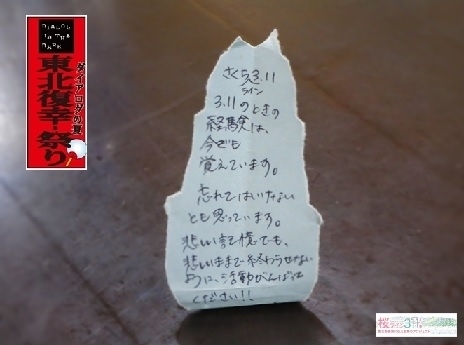 DIALOG
IN THE
DARK
ダイアログの夏
東北復幸祭り
さくら3.11
ライン
3.11のときの
経験は、
今でも
覚えています。
忘れてはいけない
とも思っています。
悲しい記憶でも、
悲しいままで終わらせない
ために、活動がんばって
ください!!
桜ライン311